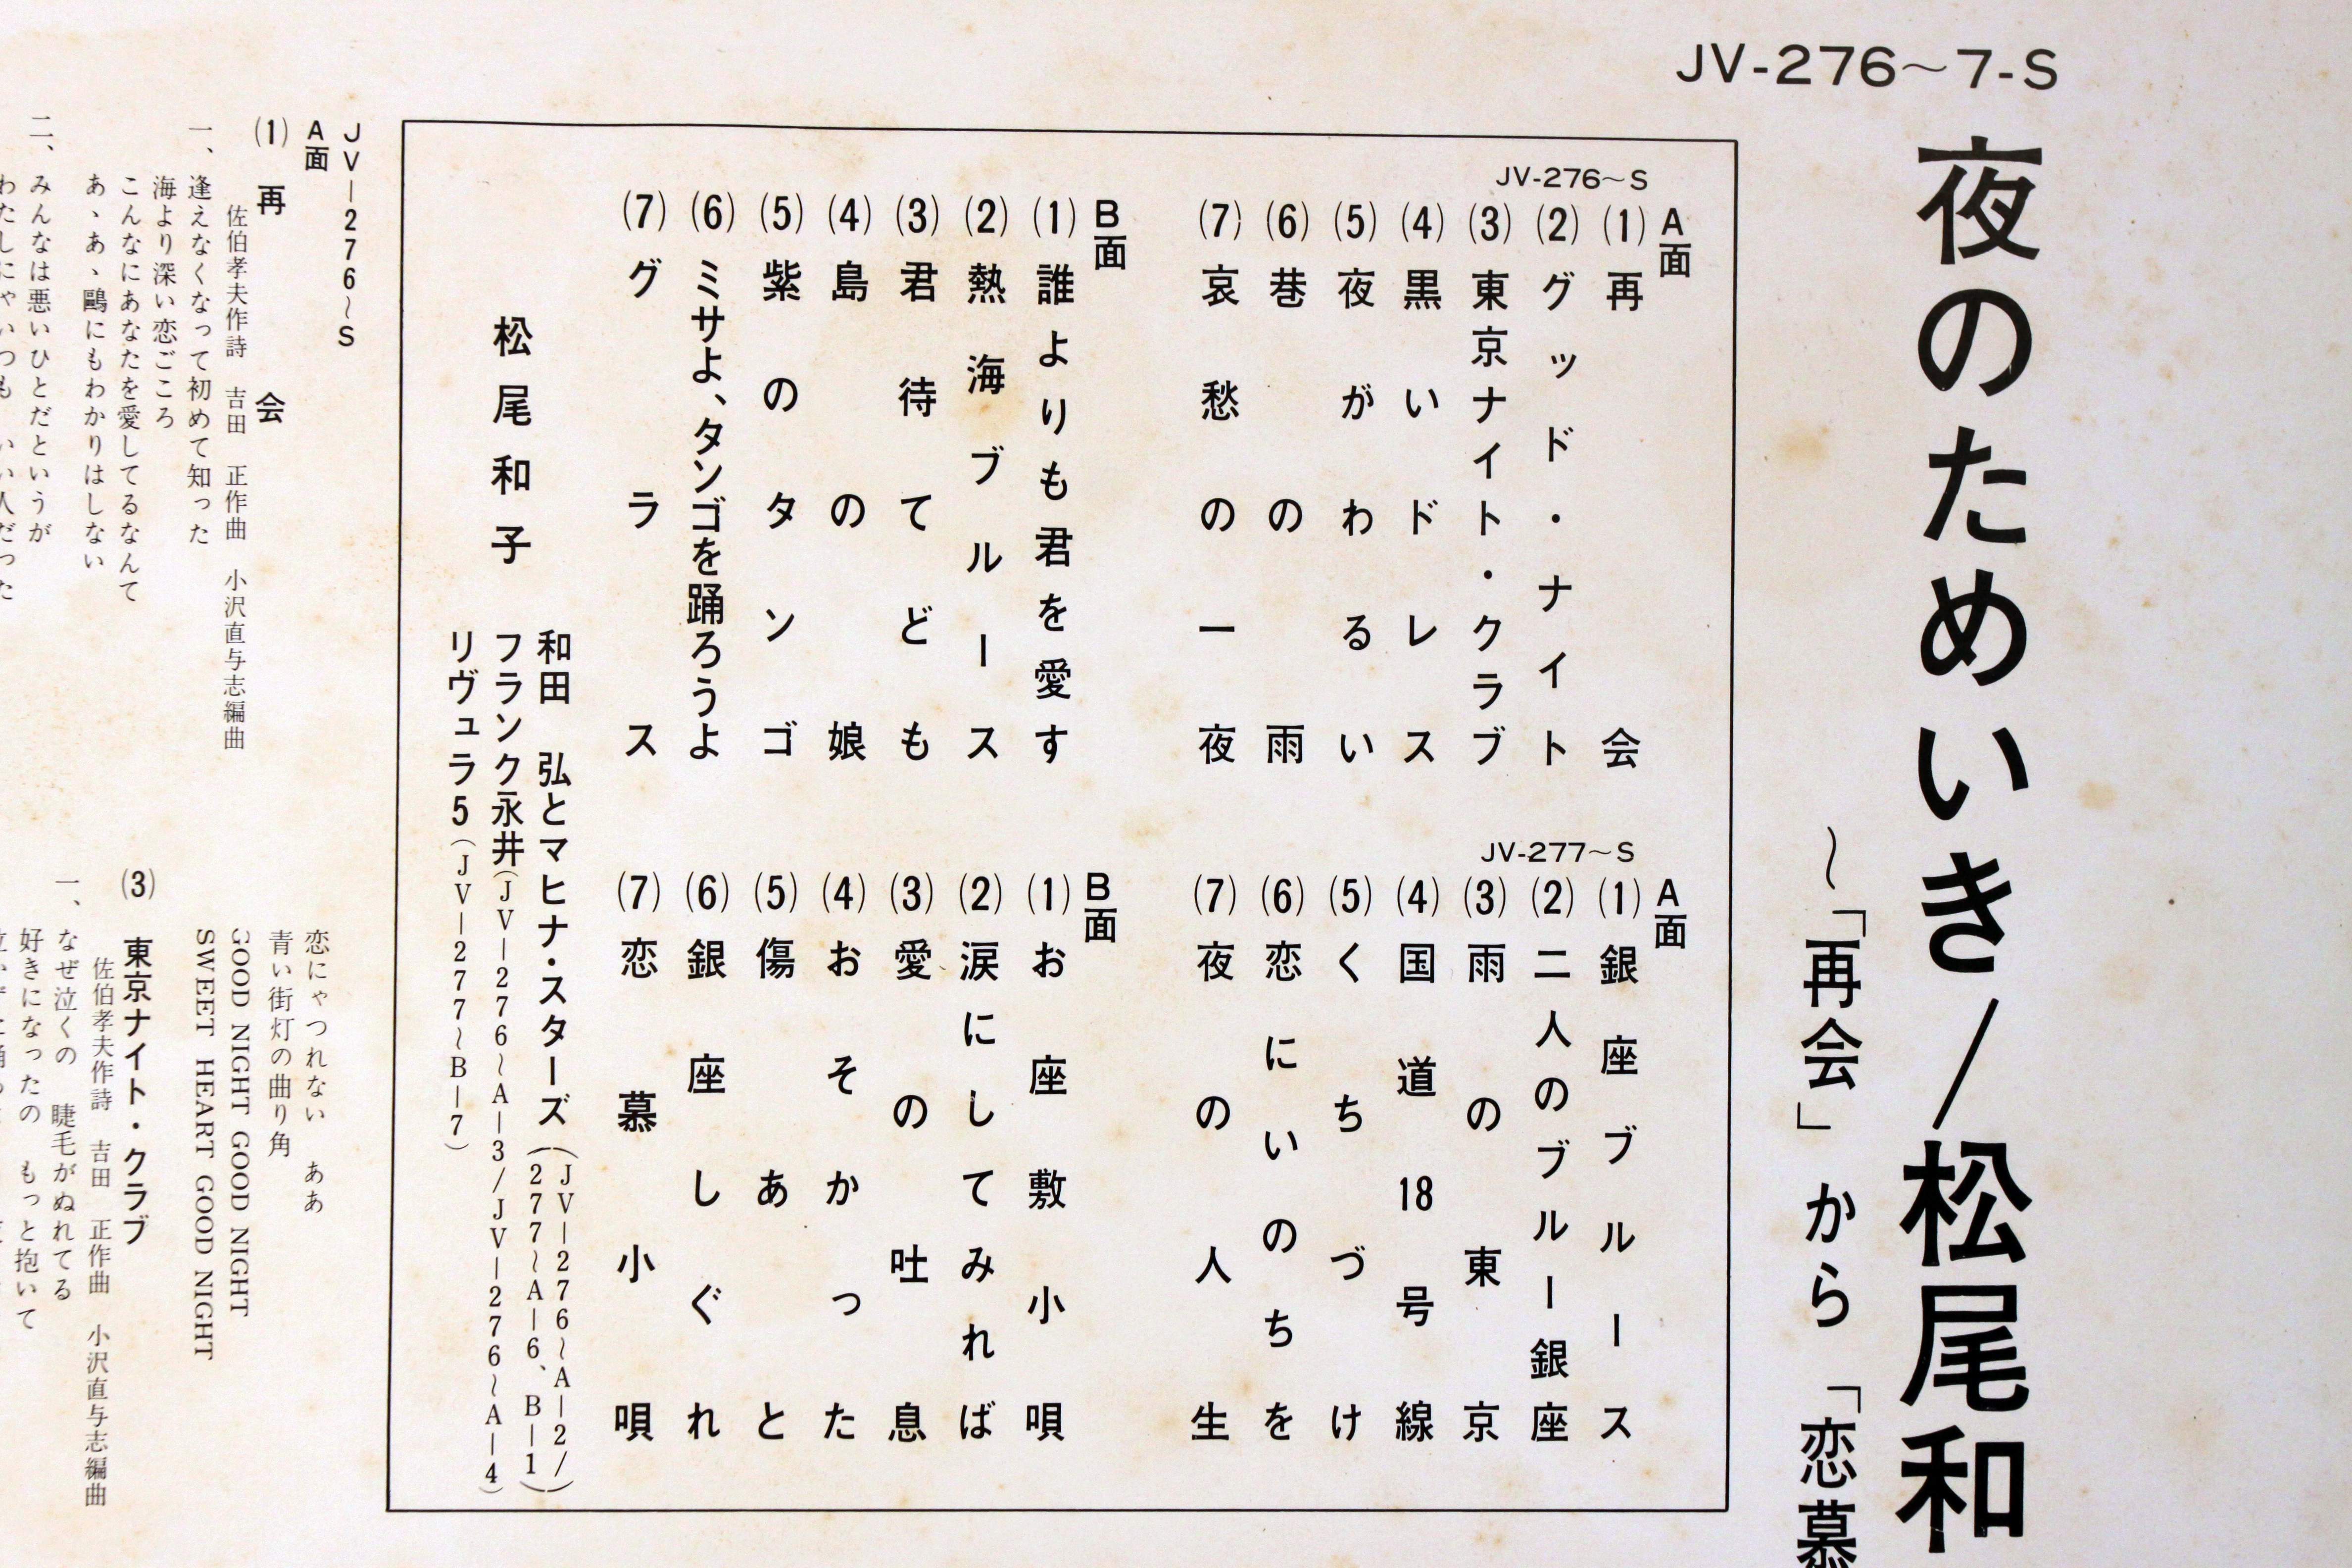 JV-276〜7-S
夜のためいき/松尾和
〜「再会」から「恋慕
JV-276〜S
A面
(1)再会
(2)グッド・ナイト
(3)東京ナイト・クラブ
(4)黒いドレス
(5)夜がわるい
(6)巷の雨
(7)哀愁の一夜
B面
(1)誰よりも君を愛す
(2)熱海ブルース
(3)君待てども
(4)島の娘
(5)紫のタンゴ
(6)ミサよ、タンゴを踊ろうよ
(7)グラス
JV-277〜S
A面
(1)銀座ブルース
(2)二人のブルー銀座
(3)雨の東京
(4)国道18号線
(5)くちづけ
(6)恋にいのちを
(7)夜の人生
B面
(1)お座敷小唄
(2)涙にしてみれば
(3)愛の吐息
(4)おそかった
(5)傷あと
(6)銀座しぐれ
(7)恋慕小唄
松尾和子
和田 弘とマヒナ・スターズ(JV-276〜A-2/277〜A-6、B-1)
フランク永井(JV-276〜A-3/JV-276〜A-4)
リヴュラ5(JV-277〜B-7)
JV-276〜S
A面
(1) 再会
佐伯孝夫作詩 吉田 正作曲 小沢直与志編曲
一、逢えなくなって初めて知った
海より深い恋ごころ
こんなにあなたを愛してるなんて
あゝあゝ鷗にもわかりはしない
二、みんなは悪いひとだというが
わたしにゃいつも いい人だった
恋にゃつれない ああ
青い街灯の曲り角
GOOD NIGHT GOOD NIGHT
SWEET HEART GOOD NIGHT
(3) 東京ナイト・クラブ
佐伯孝夫作詩 吉田 正作曲 小沢直与志編曲
一、なぜ泣くの 睫毛がぬれてる
好きになったの もっと抱いて